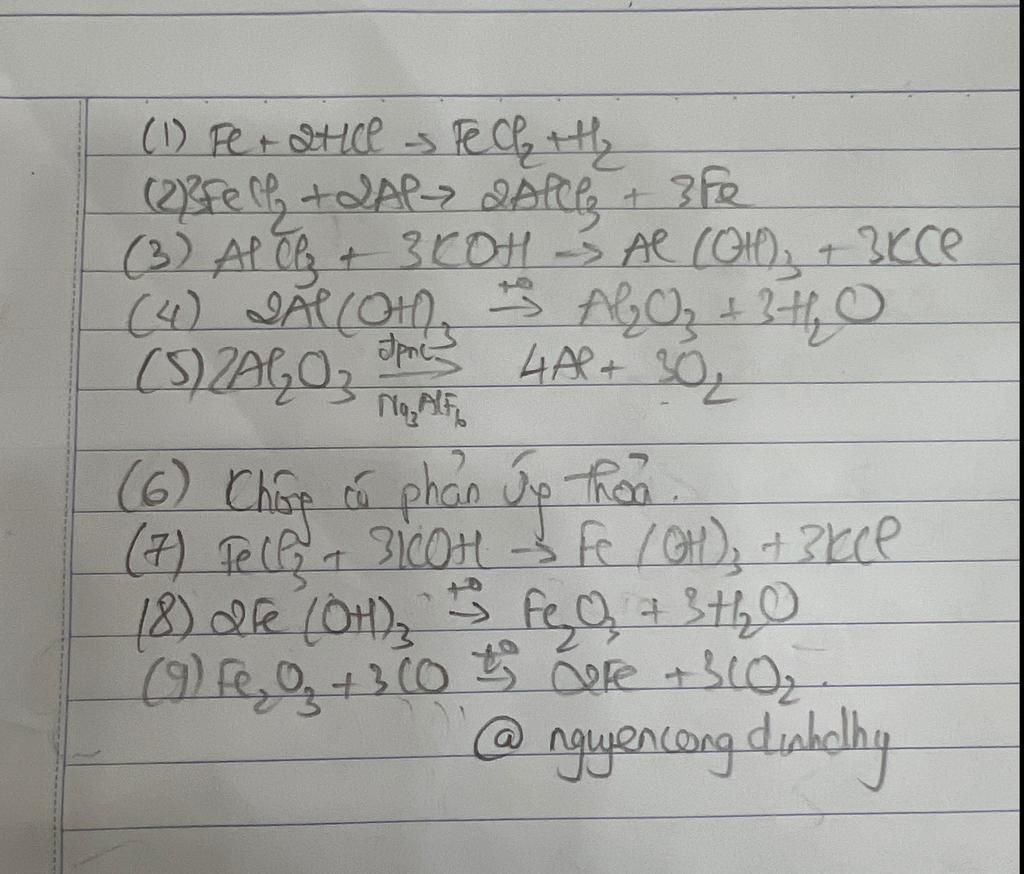 (1) Fe + 2HCl → FeCl₂ + H₂
(2) 3FeCl₂ + 2Al → 2AlCl₃ + 3Fe
(3) AlCl₃ + 3KOH → Al(OH)₃ + 3KCl
(4) 2Al(OH)₃ t⁰→ Al₂O₃ + 3H₂O
(5) 2Al₂O₃ đpnc→ Na₃AlF₆ 4Al + 3O₂
(6) Không có phản ứng thỏa.
(7) FeCl₃ + 3KOH → Fe(OH)₃ + 3KCl
(8) 2Fe(OH)₃ t⁰→ Fe₂O₃ + 3H₂O
(9) Fe₂O₃ + 3CO t⁰→ 2Fe + 3CO₂.
@ nguyencongdinhdhy